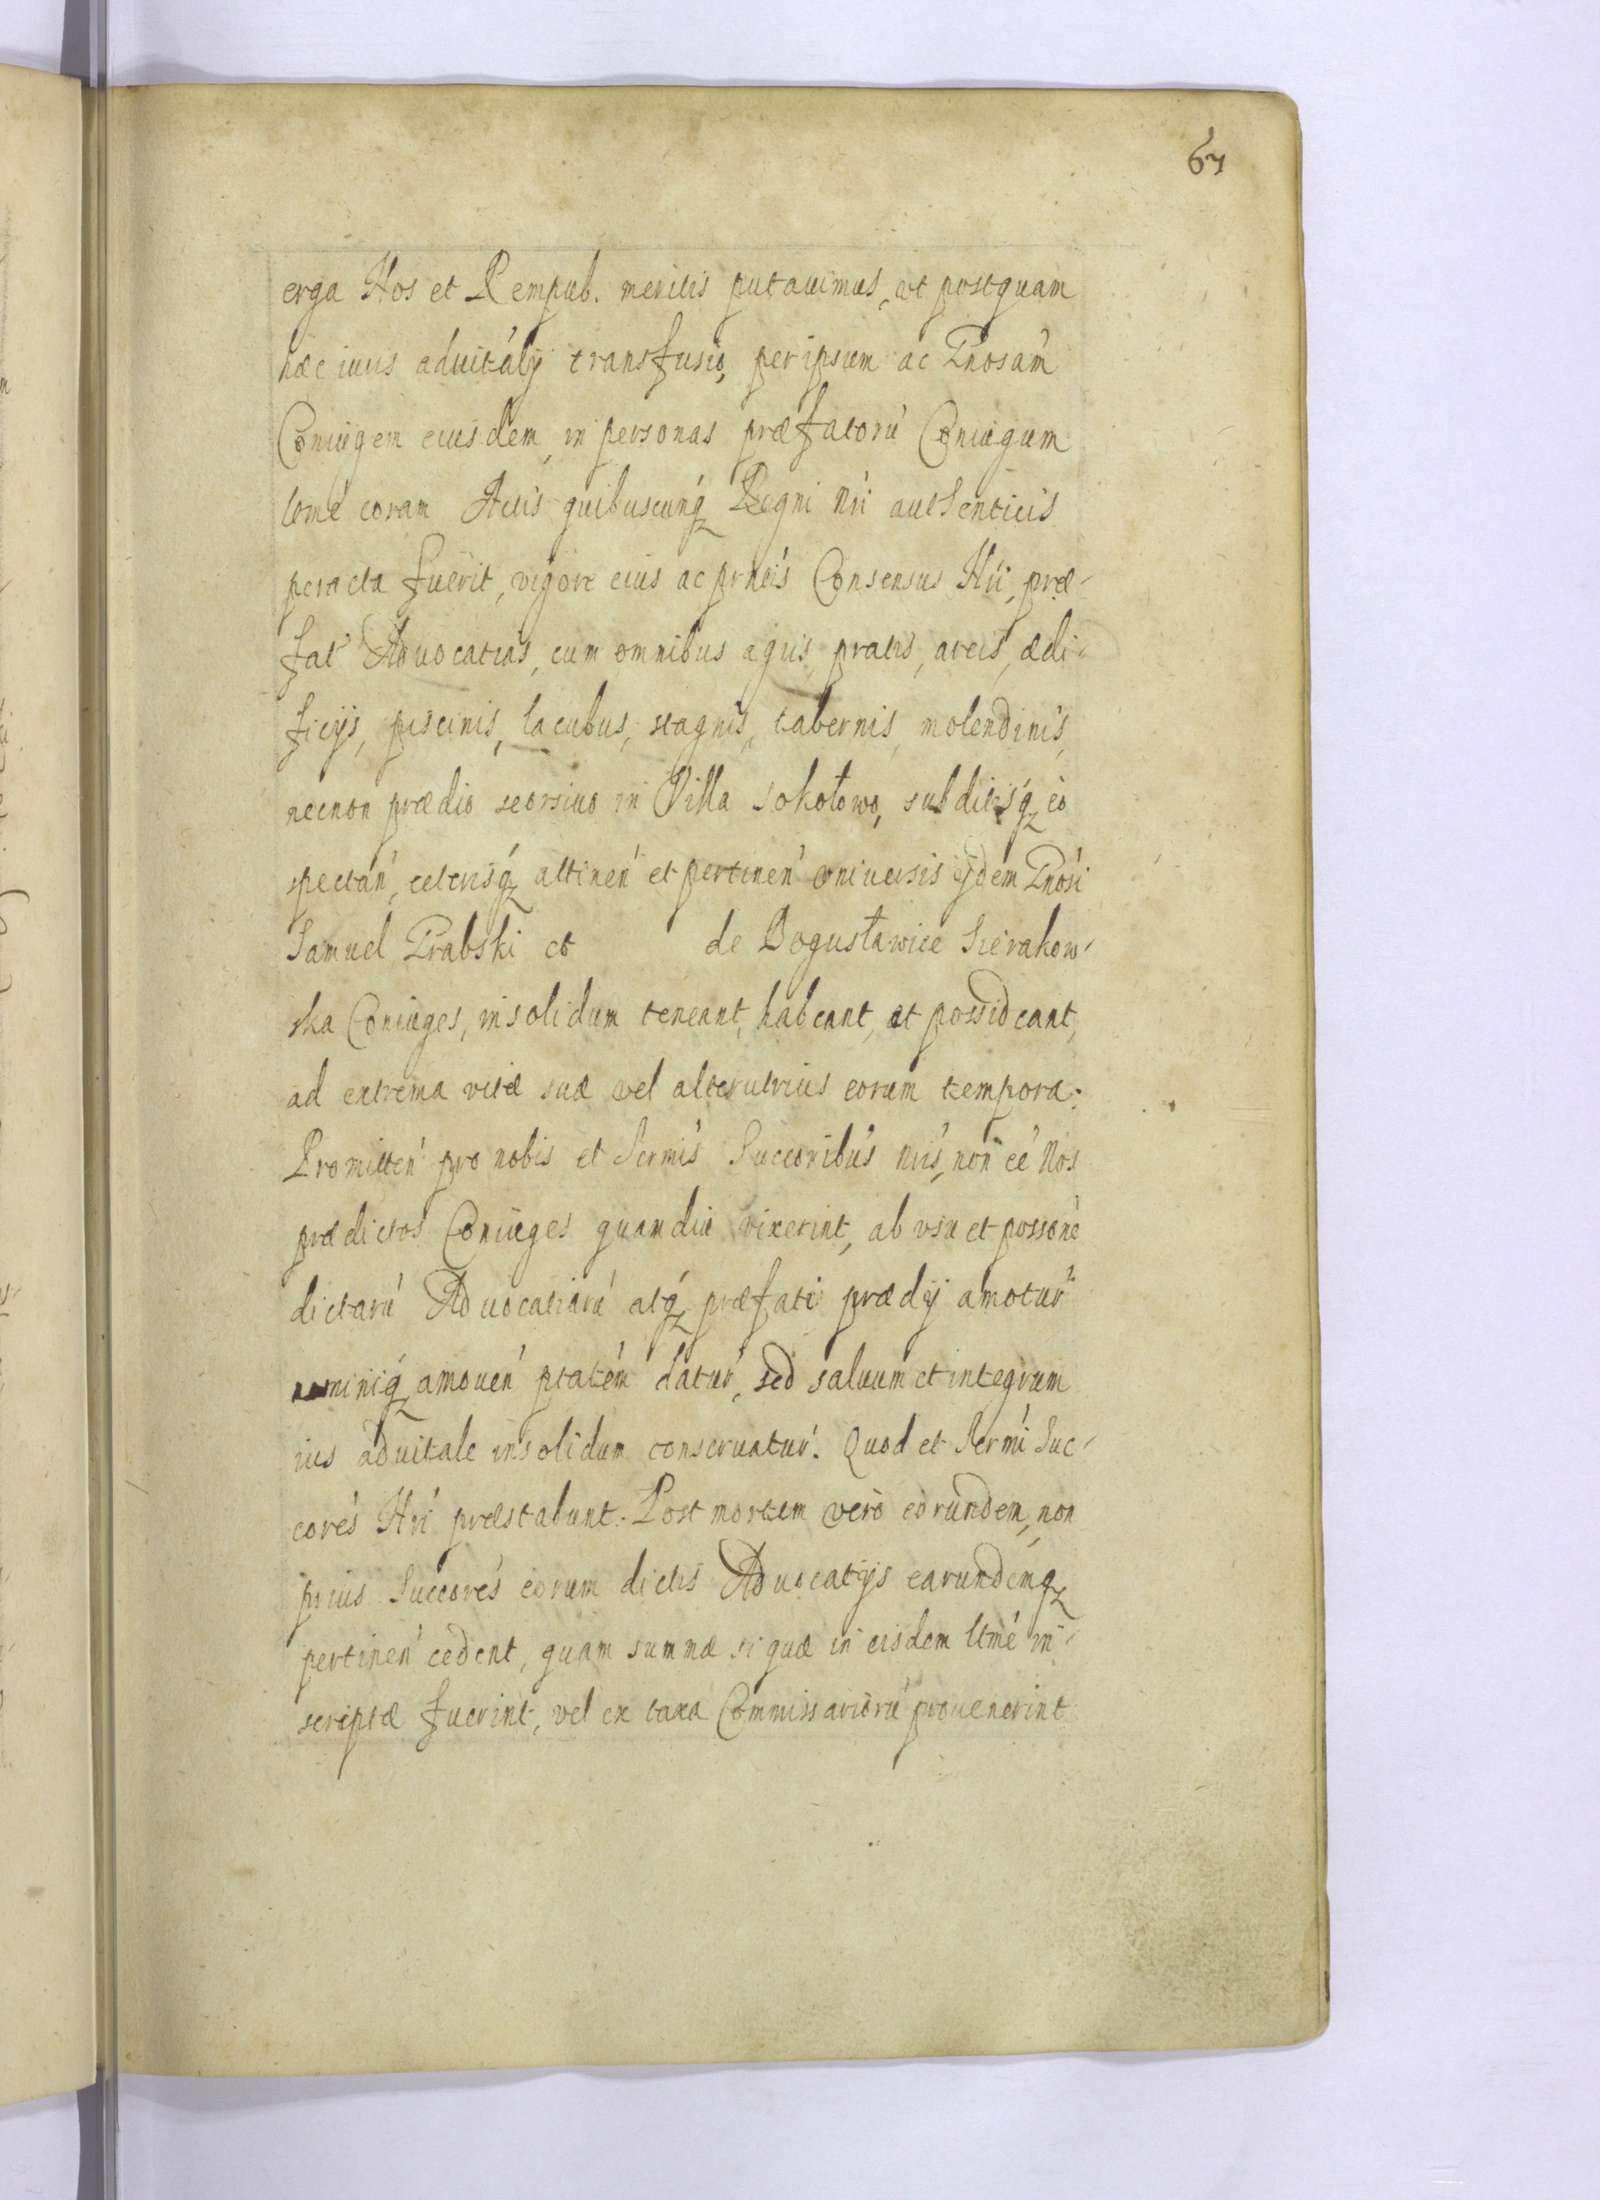 67
erga Nos et Rempub. meritis putauimus, vt postquam
hæc iuris aduitalÿ transfusio, per ipsum ac Gnosam
Coniugem eiusdem, in personas præfatorú Coniugum
ltmé coram Actis quibuscunq́ Regni Nri authenticis
peracta fuerit, vigore eius ac pntis Consensus Nri, præ-
fat Aduocatias, cum omnibus agris, pratis, areis, ædi-
ficijs, piscinis, lacubus, stagnis, tabernis, molendinis,
necnon prædio seorsiuo in Villa Sokołowo, subditisq́ eò
spectań, cetcrisq́ attineń et pertineń vniuersis ijdem Gnosi
Samuel Grabski et de Bogusławice Sierakow-
ska Coniuges, insolidum teneant, habeant, et possideant,
ad extrema vitæ suæ vel alterutrius eorum tempora.
Promitteń pro nobis et Sermis Succoribus Nris, non eé Nos
prædictos Coniuges quamdiu vixerint, ab vsu et possone
dictarú Aduocatiarú atq́ præfati prædij amotur
neminiq́ amoueń ptatem datur, sed saluum et integrum
ius aduitale insolidum conseruatur. Quod et Sermi Suc-
cores Nri præstabunt. Post mortem verò eorundem, non
prius Succores eorum dictis Aduocatijs earundemq́
pertineń cedent, quam summæ si quæ in eisdem ltmé in-
scriptæ fuerint, vel ex taxa Commissariorú prouenerint